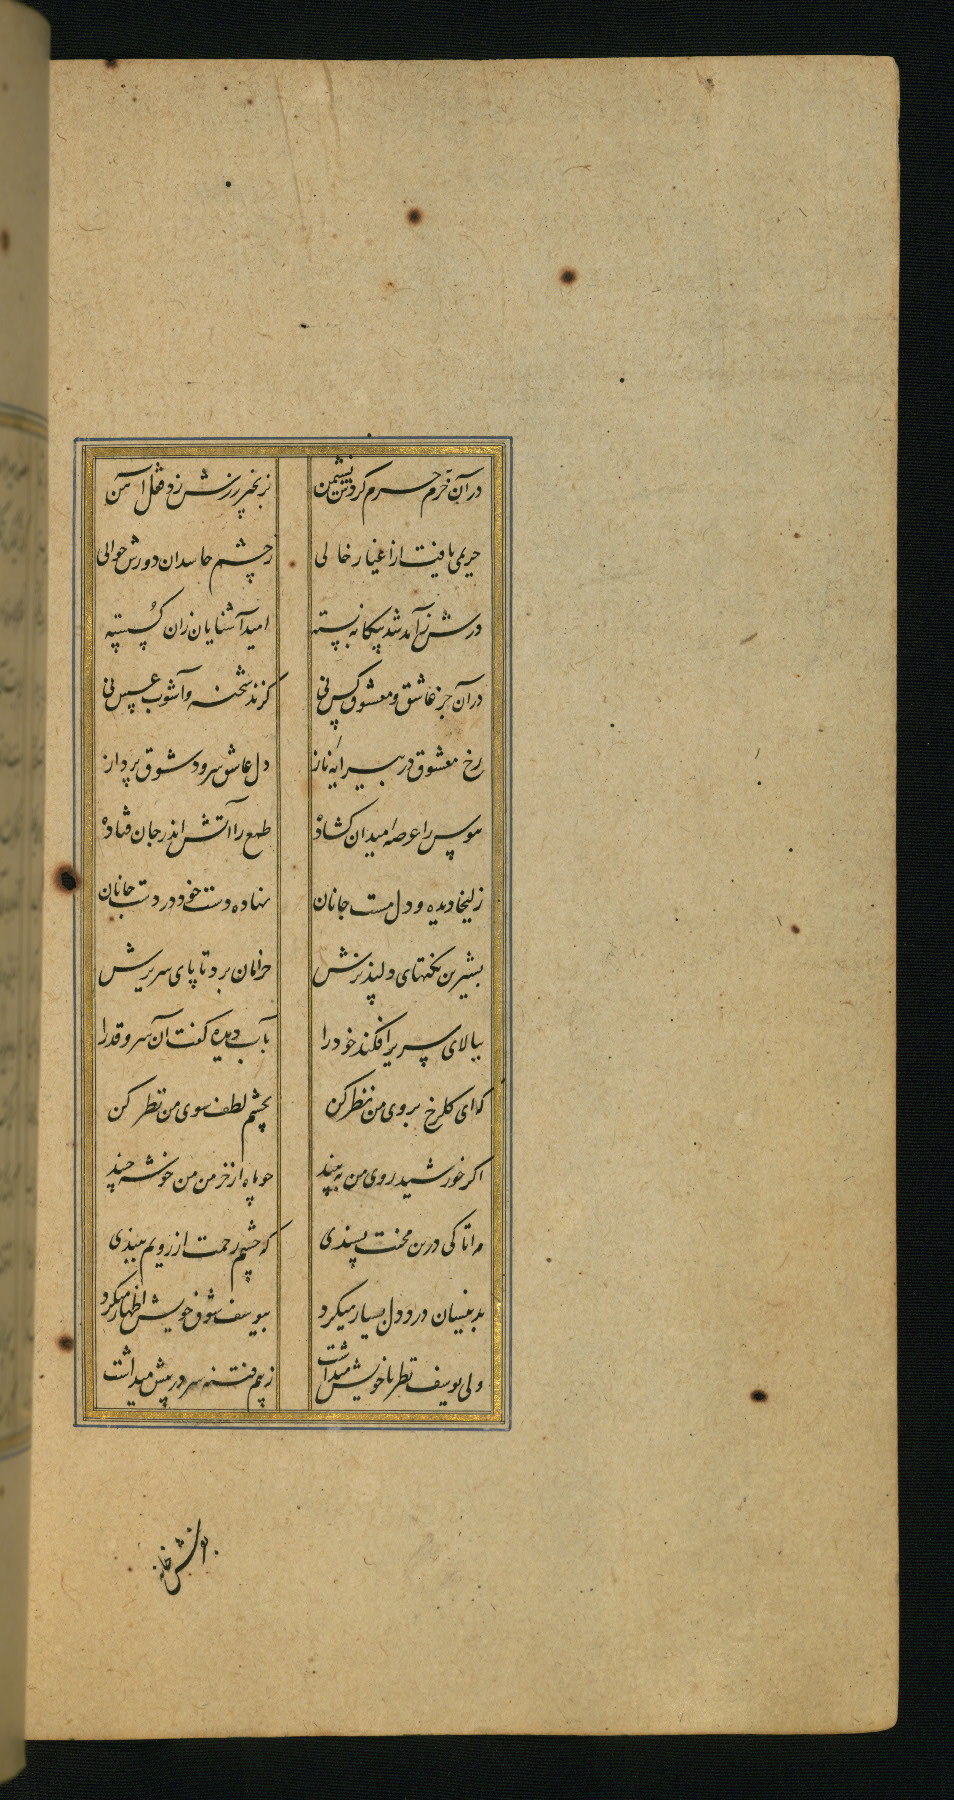 در آن خرم حرم کردش نشیمن بزنجیر زرش زد قفل آهن
حریمی یافت از اغیار خالی ز چشم حاسدان دورش حوالی
درش ز آمد شد بیگانه بسته امید آشنایان زان گسسته
در آن جز عاشق و معشوق کس نی گزند شحنه و آشوب عسس نی
رخ معشوق در پیرایه ناز دل عاشق سرود شوق پرداز
هوس را عرصه میدان گشاده طمع را آتش اندر جان فتاده
زلیخا دیده و دل مست جانان نهاده دست خود در دست جانان
بشیرین نکتهای دلپذیرش خرامان برد تا پای سریرش
ببالای سریر افکند خود را بآب دیده گفت آن سرو قد را
که ای گلرخ بروی من نظر کن بچشم لطف سوی من نظر کن
اگر خورشید روی من ببیند چو ماه از خرمن من خوشه چیند
مرا تا کی درین محنت پسندی که چشم رحمت از رویم ببندی
بدینسان درد دل بسیار میکرد بیوسف شوق خویش اظهار میکرد
ولی یوسف نظر با خویش میداشت ز بیم فتنه سر در پیش میداشت
خانه